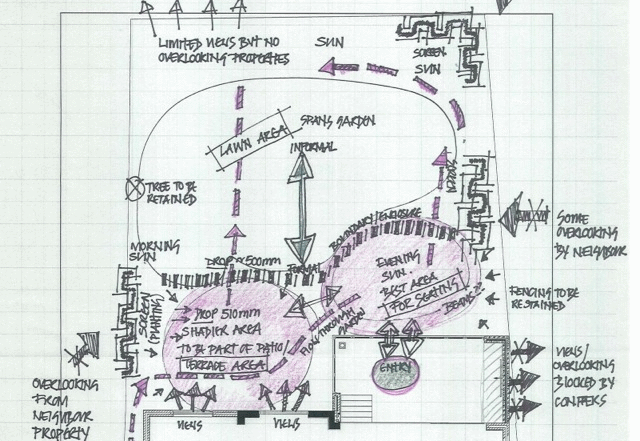 LIMITED VIEWS BUT NO
OVERLOOKING PROPERTIES
SUN
SCREEN
SUN
LAWN AREA
SPANS GARDEN
INFORMAL
SCREEN
TREE TO BE
RETAINED
SOME
OVERLOOKING
BY NEIGHBOUR
BOUNDARY/ENCLOSURE
MORNING
SUN
DROP ≈ 500mm
FORMAL
EVENING
SUN.
BEST AREA
FOR SEATING
FENCING TO BE
RETAINED
SCREEN
(PLANTING)
DROP 510mm
SHADIER AREA
TO BE PART OF PATIO/
TERRACE AREA
FLOW THROUGH
GARDEN
ENTRY
VIEWS/
OVERLOOKING
BLOCKED BY
CONIFERS
OVERLOOKING
FROM
NEIGHBOUR
PROPERTY
VIEWS
VIEWS